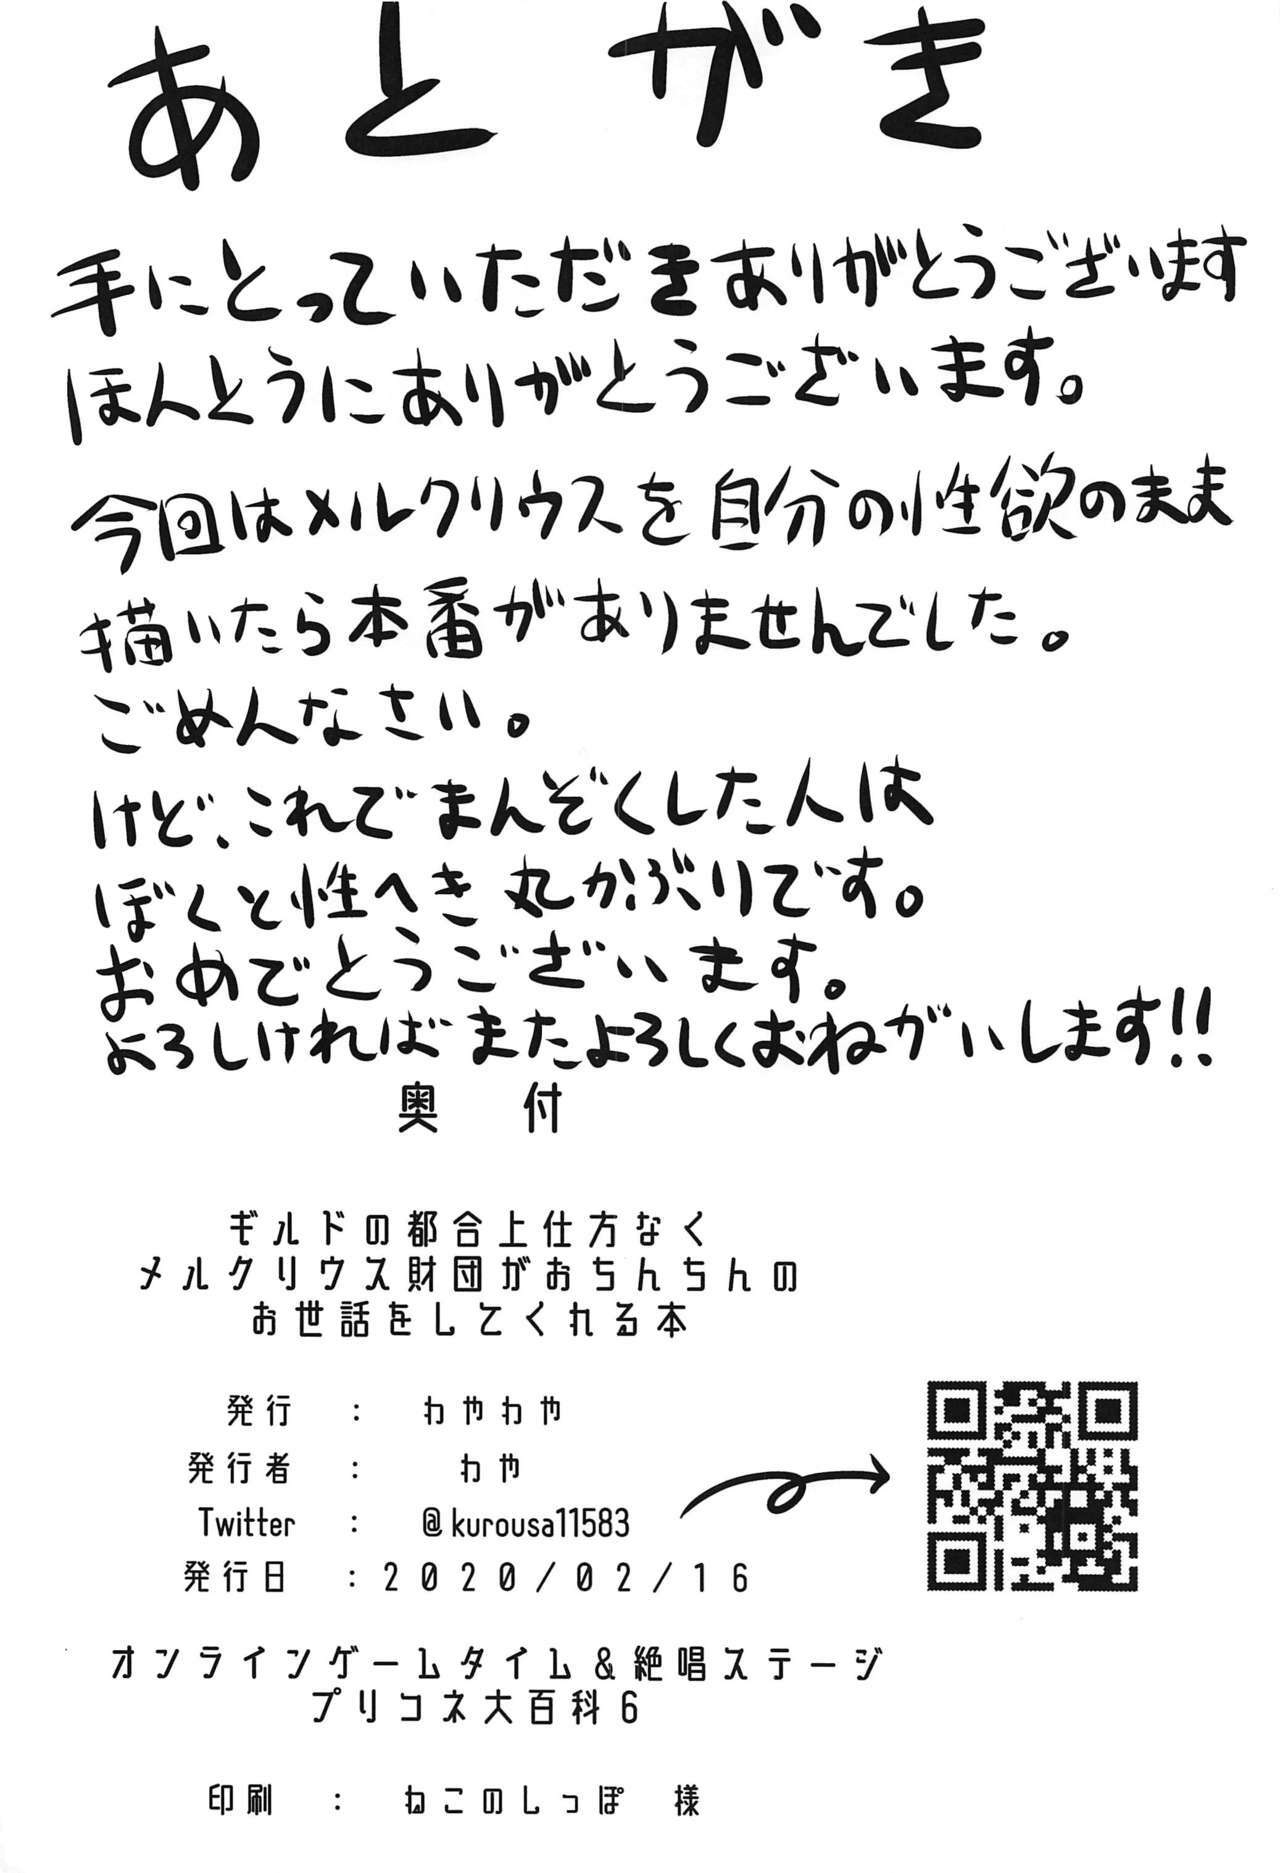 あとがき
手にとっていただきありがとうございます
ほんとうにありがとうございます。
今回はメルクリウスを自分の性欲のまま
描いたら本番がありませんでした。
ごめんなさい。
けど、これでまんぞくした人は
ぼくと性へき丸かぶりです。
おめでとうございます。
よろしければまたよろしくおねがいします!!
奥付
ギルドの都合上仕方なく
メルクリウス財団がおちんちんの
お世話をしてくれる本
発行 : わやわや
発行者 : わや
Twitter : @kurousa11583
発行日 : 2020/02/16
オンラインゲームタイム&絶唱ステージ
プリコネ大百科6
印刷 : ねこのしっぽ 様